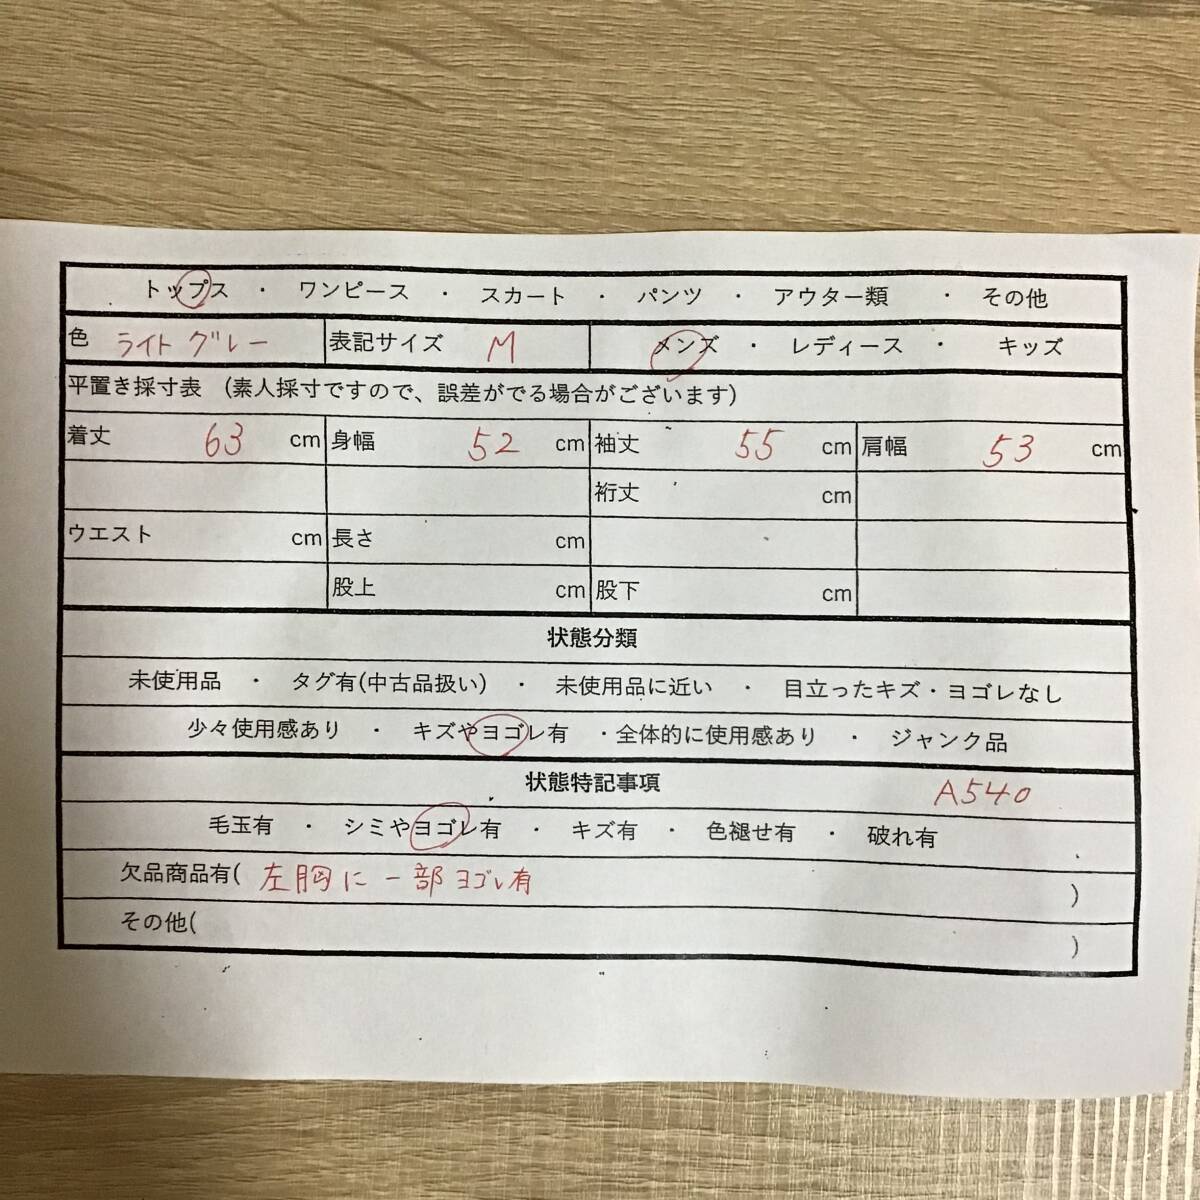 トップス ・ ワンピース ・ スカート ・ パンツ ・ アウター類 ・ その他
色 ライトグレー 表記サイズ M メンズ ・ レディース ・ キッズ
平置き採寸表 (素人採寸ですので、誤差がでる場合がございます)
着丈 63 cm 身幅 52 cm 袖丈 55 cm 肩幅 53 cm
裄丈 cm
ウエスト cm 長さ cm
股上 cm 股下 cm
状態分類
未使用品 ・ タグ有(中古品扱い) ・ 未使用品に近い ・ 目立ったキズ・ヨゴレなし
少々使用感あり ・ キズやヨゴレ有 ・全体的に使用感あり ・ ジャンク品
状態特記事項 A540
毛玉有 ・ シミやヨゴレ有 ・ キズ有 ・ 色褪せ有 ・ 破れ有
欠品商品有( 左胸に一部ヨゴレ有 )
その他( )